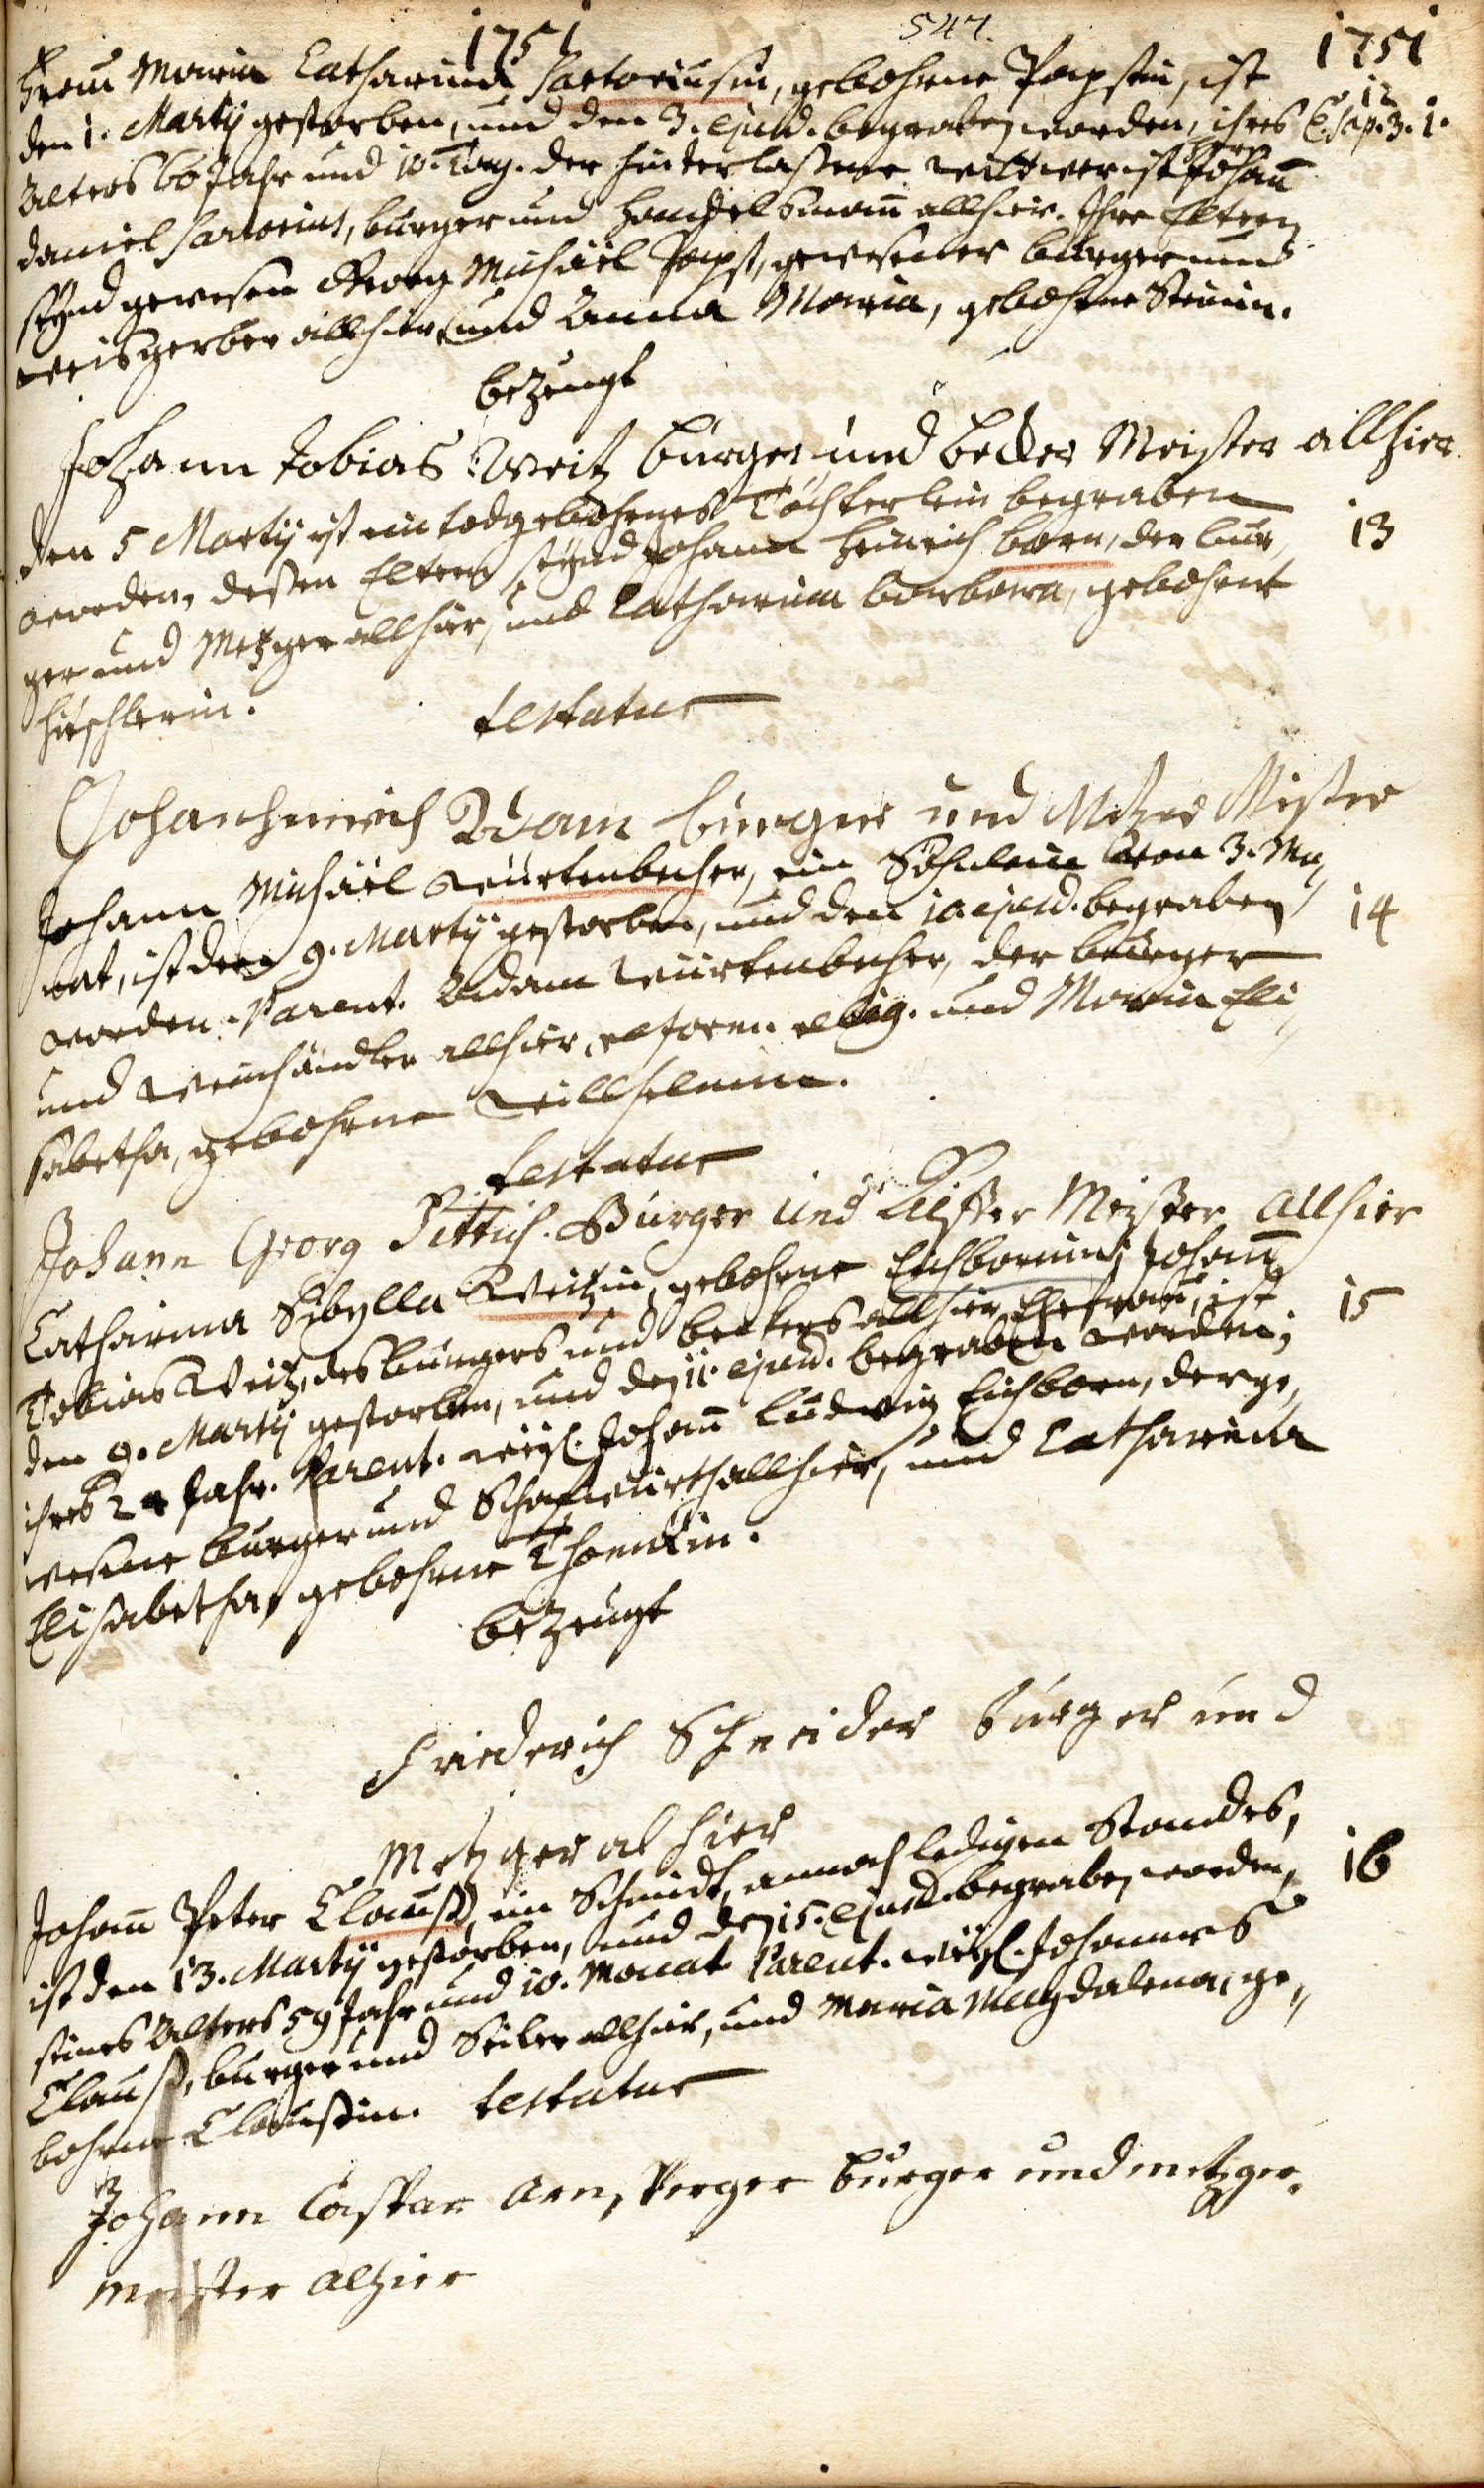 1751 547. 1751
Frau Maria Catharina Sartoriusin, gebohrne Papstin, ist
12
den 1. Martij gestorben, und den 3. ejusd. begraben worden, ihres C. Sap. 3. 1.
Alters 60 Jahr und 10. Tag. der hinterlaßene Wittwer ist Herr Johañ
Daniel Sartorius, burger und Handelsmañ allhier. Ihre Eltern
seynd gewesen Georg Michäel Papst, gewesener burger und
Weisgerber allhier, und Anna Maria, gebohrne
bezeugt
Johann Tobias Weitz burger und becker Meister allhier
den 5 Martij ist ein todgebohrenes Töchterlein begraben
13
worden, deßen Eltern seynd Johann Heinrich born, der bur,
ger und Metzger allhier, und Catharina barbara, gebohrne
Hirschlerin.
testatur
Johanhenrich Adam burger und Metzer Meister
Johann Michäel Würtenbecher, ein Söhnlein von 3. Mo,
14
nat, ist den 9. Martij gestorben, und den 10. ejusd. begraben
worden. Parent. Adam Würtenbecher, der burger
und Weinhändler allhier, reform. relig. und Maria Eli,,
sabetha, gebohrne Willhelmin.
testatur
Johann Georg Pittich. Burger und Küffer Meister allhier
Catharina Sibylla Weitzin, gebohrne Eichbornin, Johañ
15
Tobias Weitz, des burgers und beckers allhier Ehefrau, ist
den 9. Martij gestorben, und den 11. ejusd. begraben worden;
ihres 24 Jahr. Parent. weyl. Johañ Ludwig Eichborn, der ge,
wesene burger und Schafwürth allhier, und Catharina
Elisabetha, gebohrne
bezeugt
Friederich Schneider burger und
Metzger al hier
Johañ Peter Clauß, ein Schmidt, annoch ledigen Standes,
16
ist den 13. Martij gestorben, und den 15. ejusd. begraben worden,
seines Alters 59 Jahr und 10. Monat Parent. weyl. Johannes
Clauß, burger und Seiler allhier, und Maria Magdalena, ge,,
bohrne Claußin. testatur
Johann Caspar Arnsperger burger und metzger
meister alhier